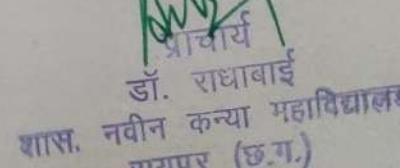 प्राचार्य
डॉ. राधाबाई
शास. नवीन कन्या महाविद्यालय
(छ.ग.)